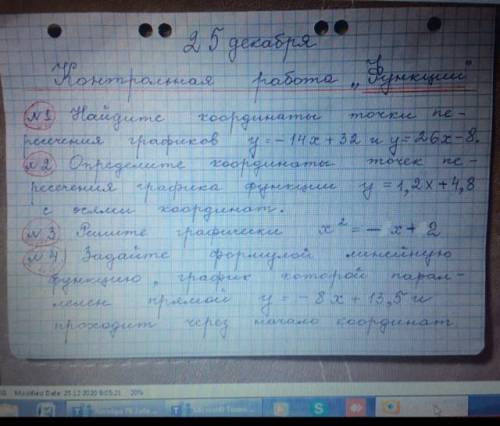 25 декабря
Контрольная работа „Функции"
№1 Найдите координаты точки пе-
ресечения графиков y=-14x+32 и y=26x-8.
№2 Определите координаты точек пе-
ресечения графика функции y=1,2x+4,8
с осями координат.
№3 Решите графически x²=-x+2
№4) Задайте формулой линейную
функцию, график которой парал-
лелен прямой y=-8x+13,5 и
проходит через начало координат
Modified Date: 25.12.2020 9:05:21 20%
Microsoft Teams